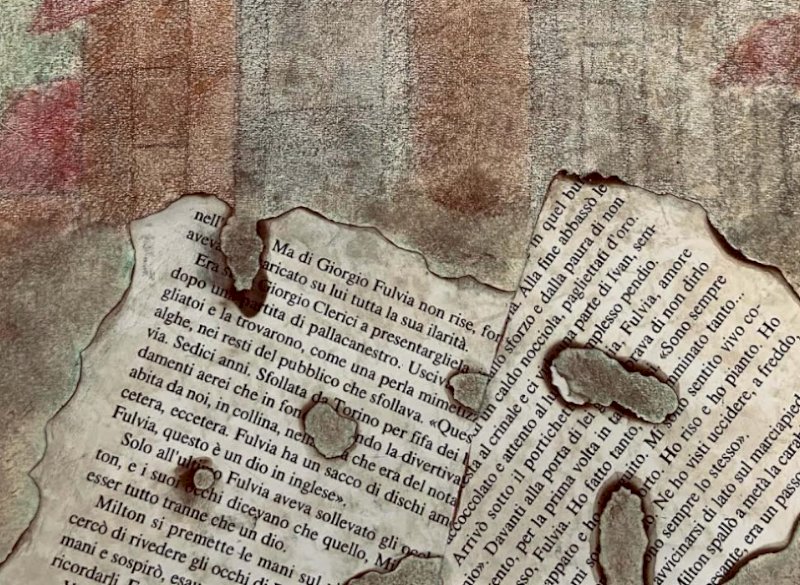 nell'
avev Ma di Giorgio Fulvia non rise, for
aricato su lui tutta la sua ilarità.
Era Giorgio Clerici a presentargliela
dopo una partita di pallacanestro. Usciv
gliatoi e la trovarono, come una perla mimetiz
alghe, nei resti del pubblico che sfollava. «Que
via. Sedici anni. Sfollata da Torino per fifa dei
damenti aerei che in fon ndo la divertiva
abita da noi, in collina, nel che era del nota
cetera, eccetera. Fulvia ha un sacco di dischi am
Fulvia, questo è un dio in inglese».
Solo all'ul Fulvia aveva sollevato gli occ
ton, e i suoi occhi dicevano che quello, Mi
esser tutto tranne che un dio.
Milton si premette le mani sul
cercò di rivedere gli occhi di
mani e sospirò, esau
ricordarli. E
in quel bu
a. Alla fine abbassò le
o sforzo e dalla paura di non
un caldo nocciola, pagliettati d'oro.
la al crinale e ci a parte di Ivan, sem-
coccolato e attento al mplesso pendio.
Arrivò sotto il portichet a, Fulvia, amore
io». Davanti alla porta di le rava di non dirlo
ento, per la prima volta in ta «Sono sempre
sso, Fulvia. Ho fatto tanto, minato tanto...
appato e ho ito. M sentito vivo co-
mi so orto. Ho riso e ho pianto. Ho
Ne ho visti uccidere, a freddo,
no sempre lo stesso».
vvicinarsi di lato sul marciapied
Milton spallò a metà la cara
cante, era un passo